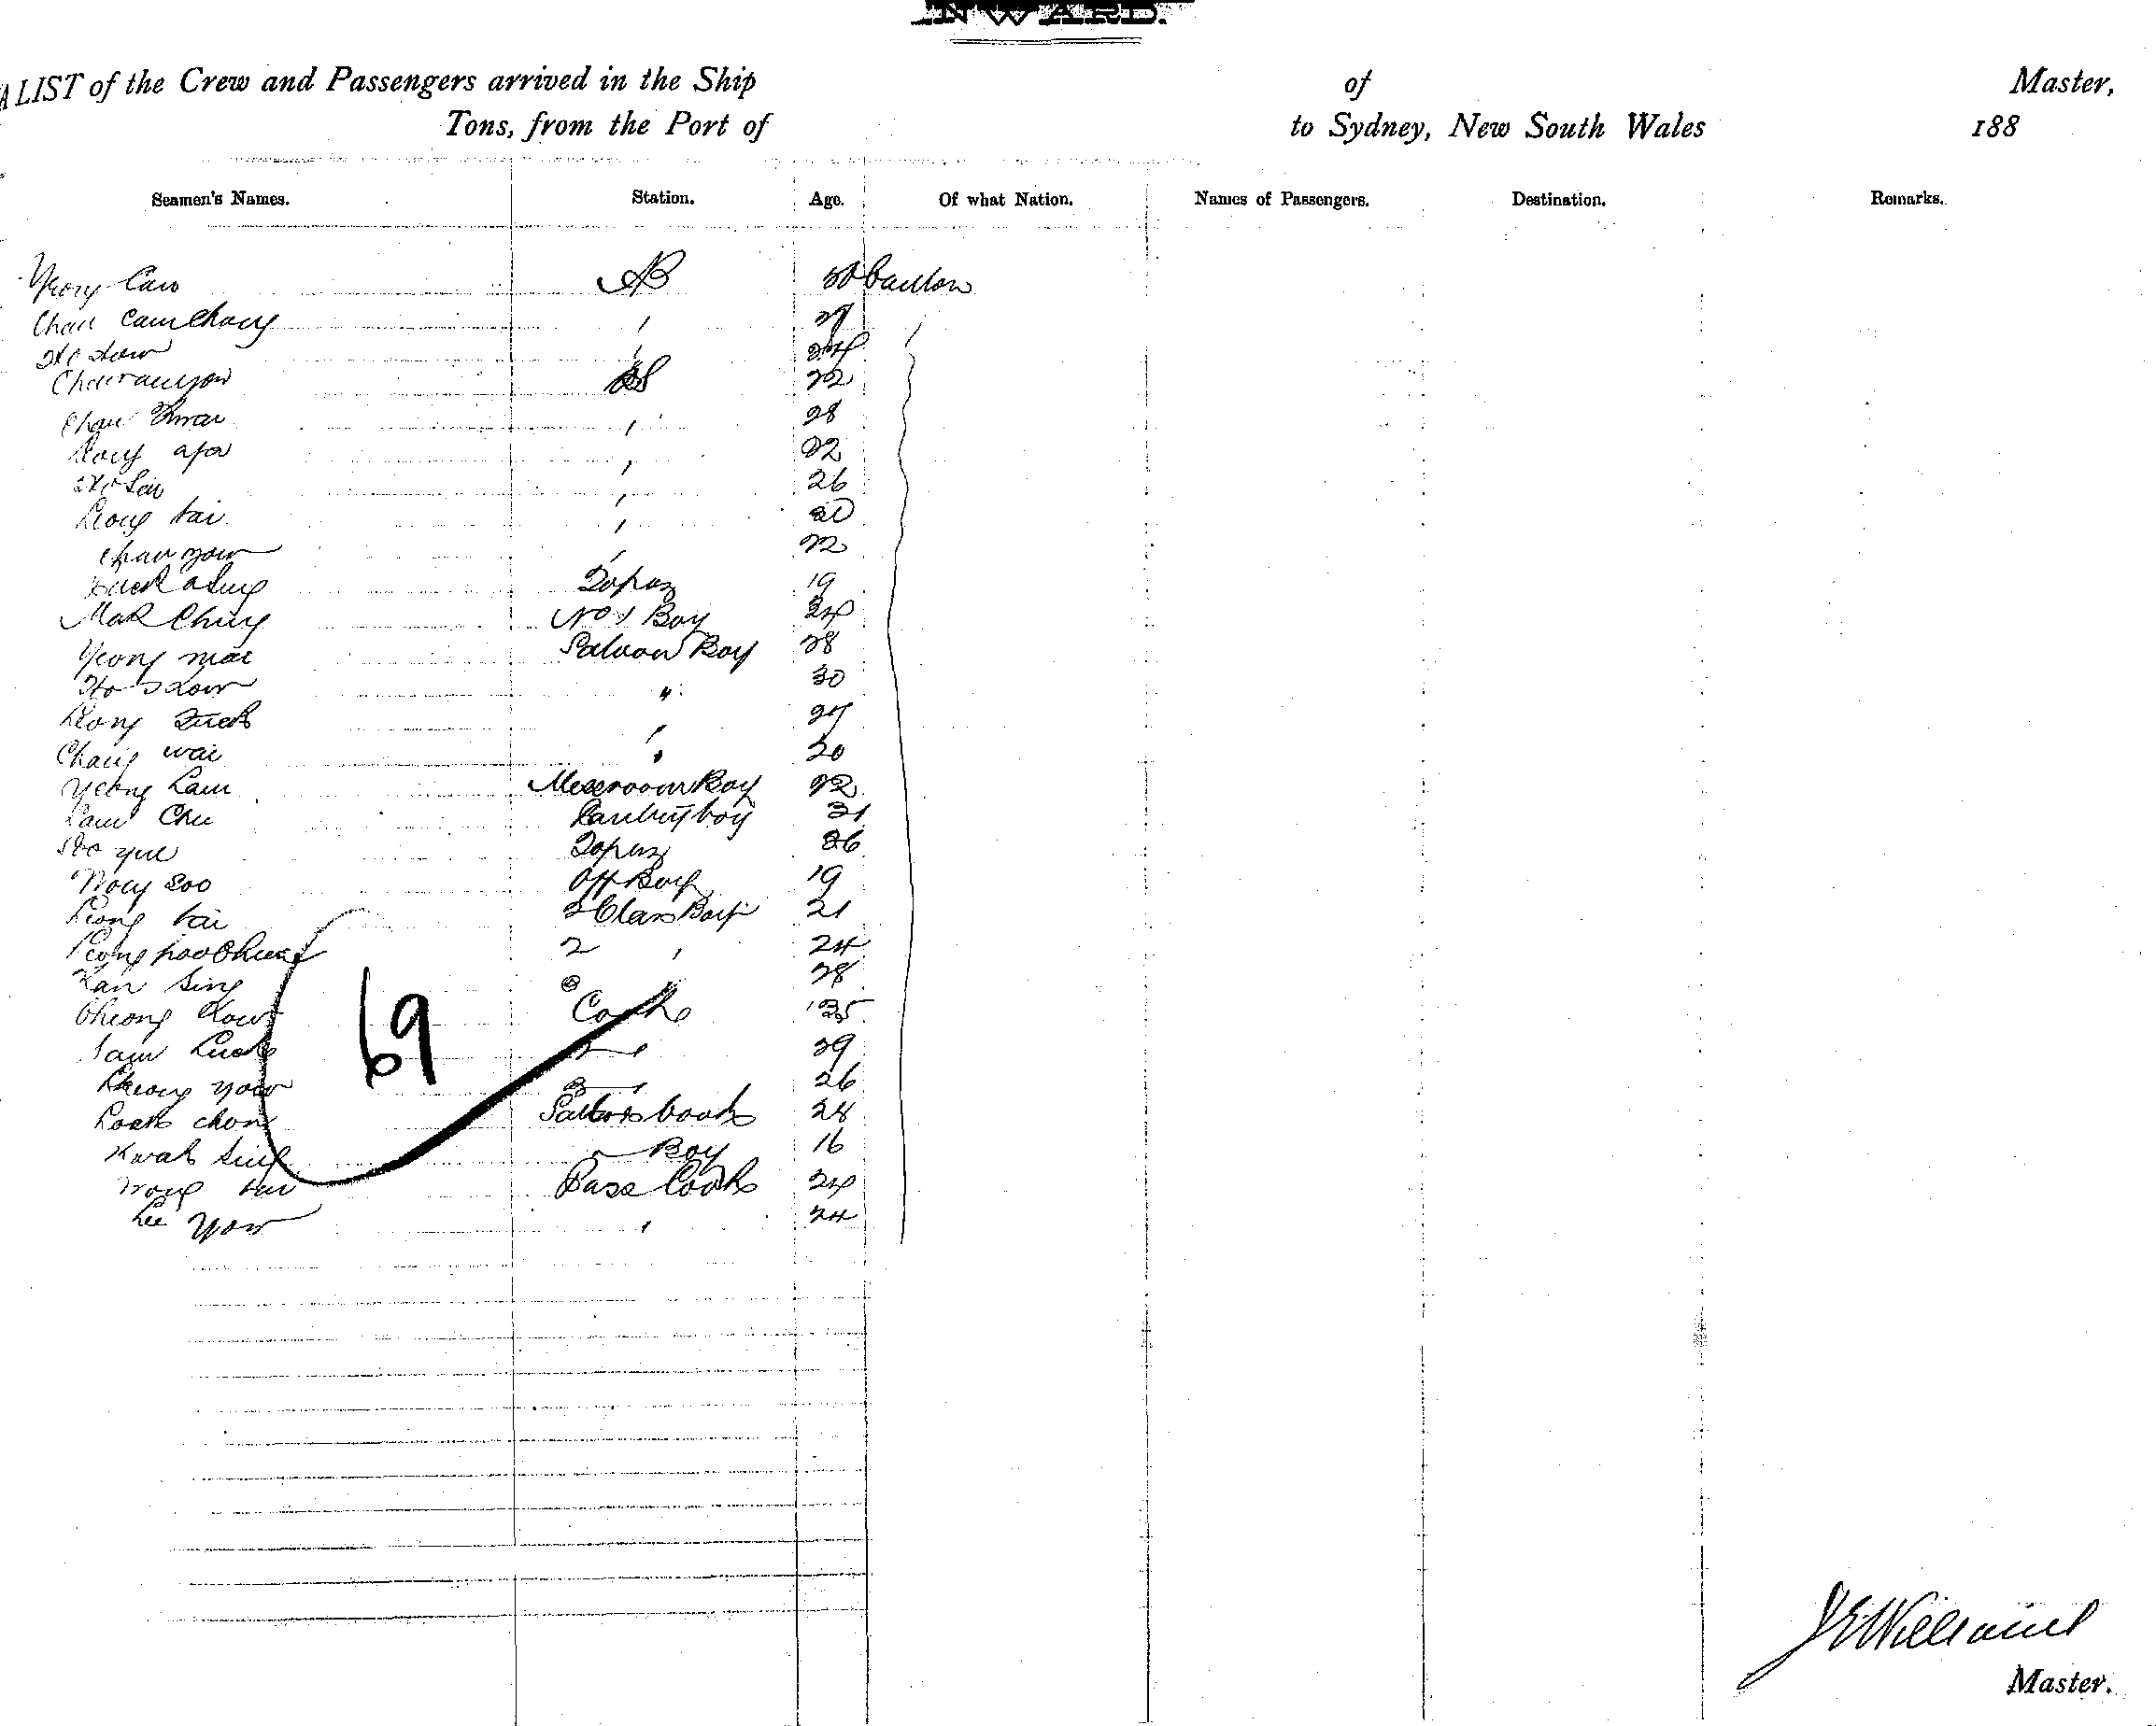 INWARD.
A LIST of the Crew and Passengers arrived in the Ship of Master,
Tons, from the Port of to Sydney, New South Wales 188
Seamen's Names. Station. Age. Of what Nation. Names of Passengers. Destination. Remarks.
Yeong Cam AB 50 Canton
Chan Cam Chong 27
24
22
Chan 28
22
26
Leong tai 20
Chan yow 22
Topaz 19
Mak Ching No 1 Boy 24
Yeong mai Saloon Boy 28
Ho 30
Leong 27
Chang wai 20
Yeong Lam Messroom Boy 22
Lam Chu Pantry boy 21
yue Topaz 26
Wong Soo Off Boy 19
Leong tai 2 Class Boy 21
Leong 2 24
Kan Sing 28
Cheong Cooks 35
Sam 2 29
yow 3 26
chong Sailors Cook 28
Kwak Sing Boy 16
Wong Pass Cook 24
Lee Yow 24
69
J E Williams
Master.